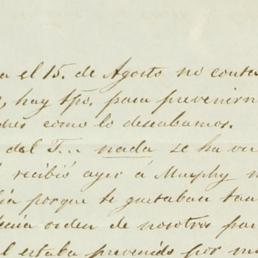 a el 15. de Agosto no conta
hay tpo. para prevenirn
como lo deseabamos.
del T... nada se ha
recibió ayer á Murphy
porque se gustaban
orden de nosotros par
el estaba prevenido por